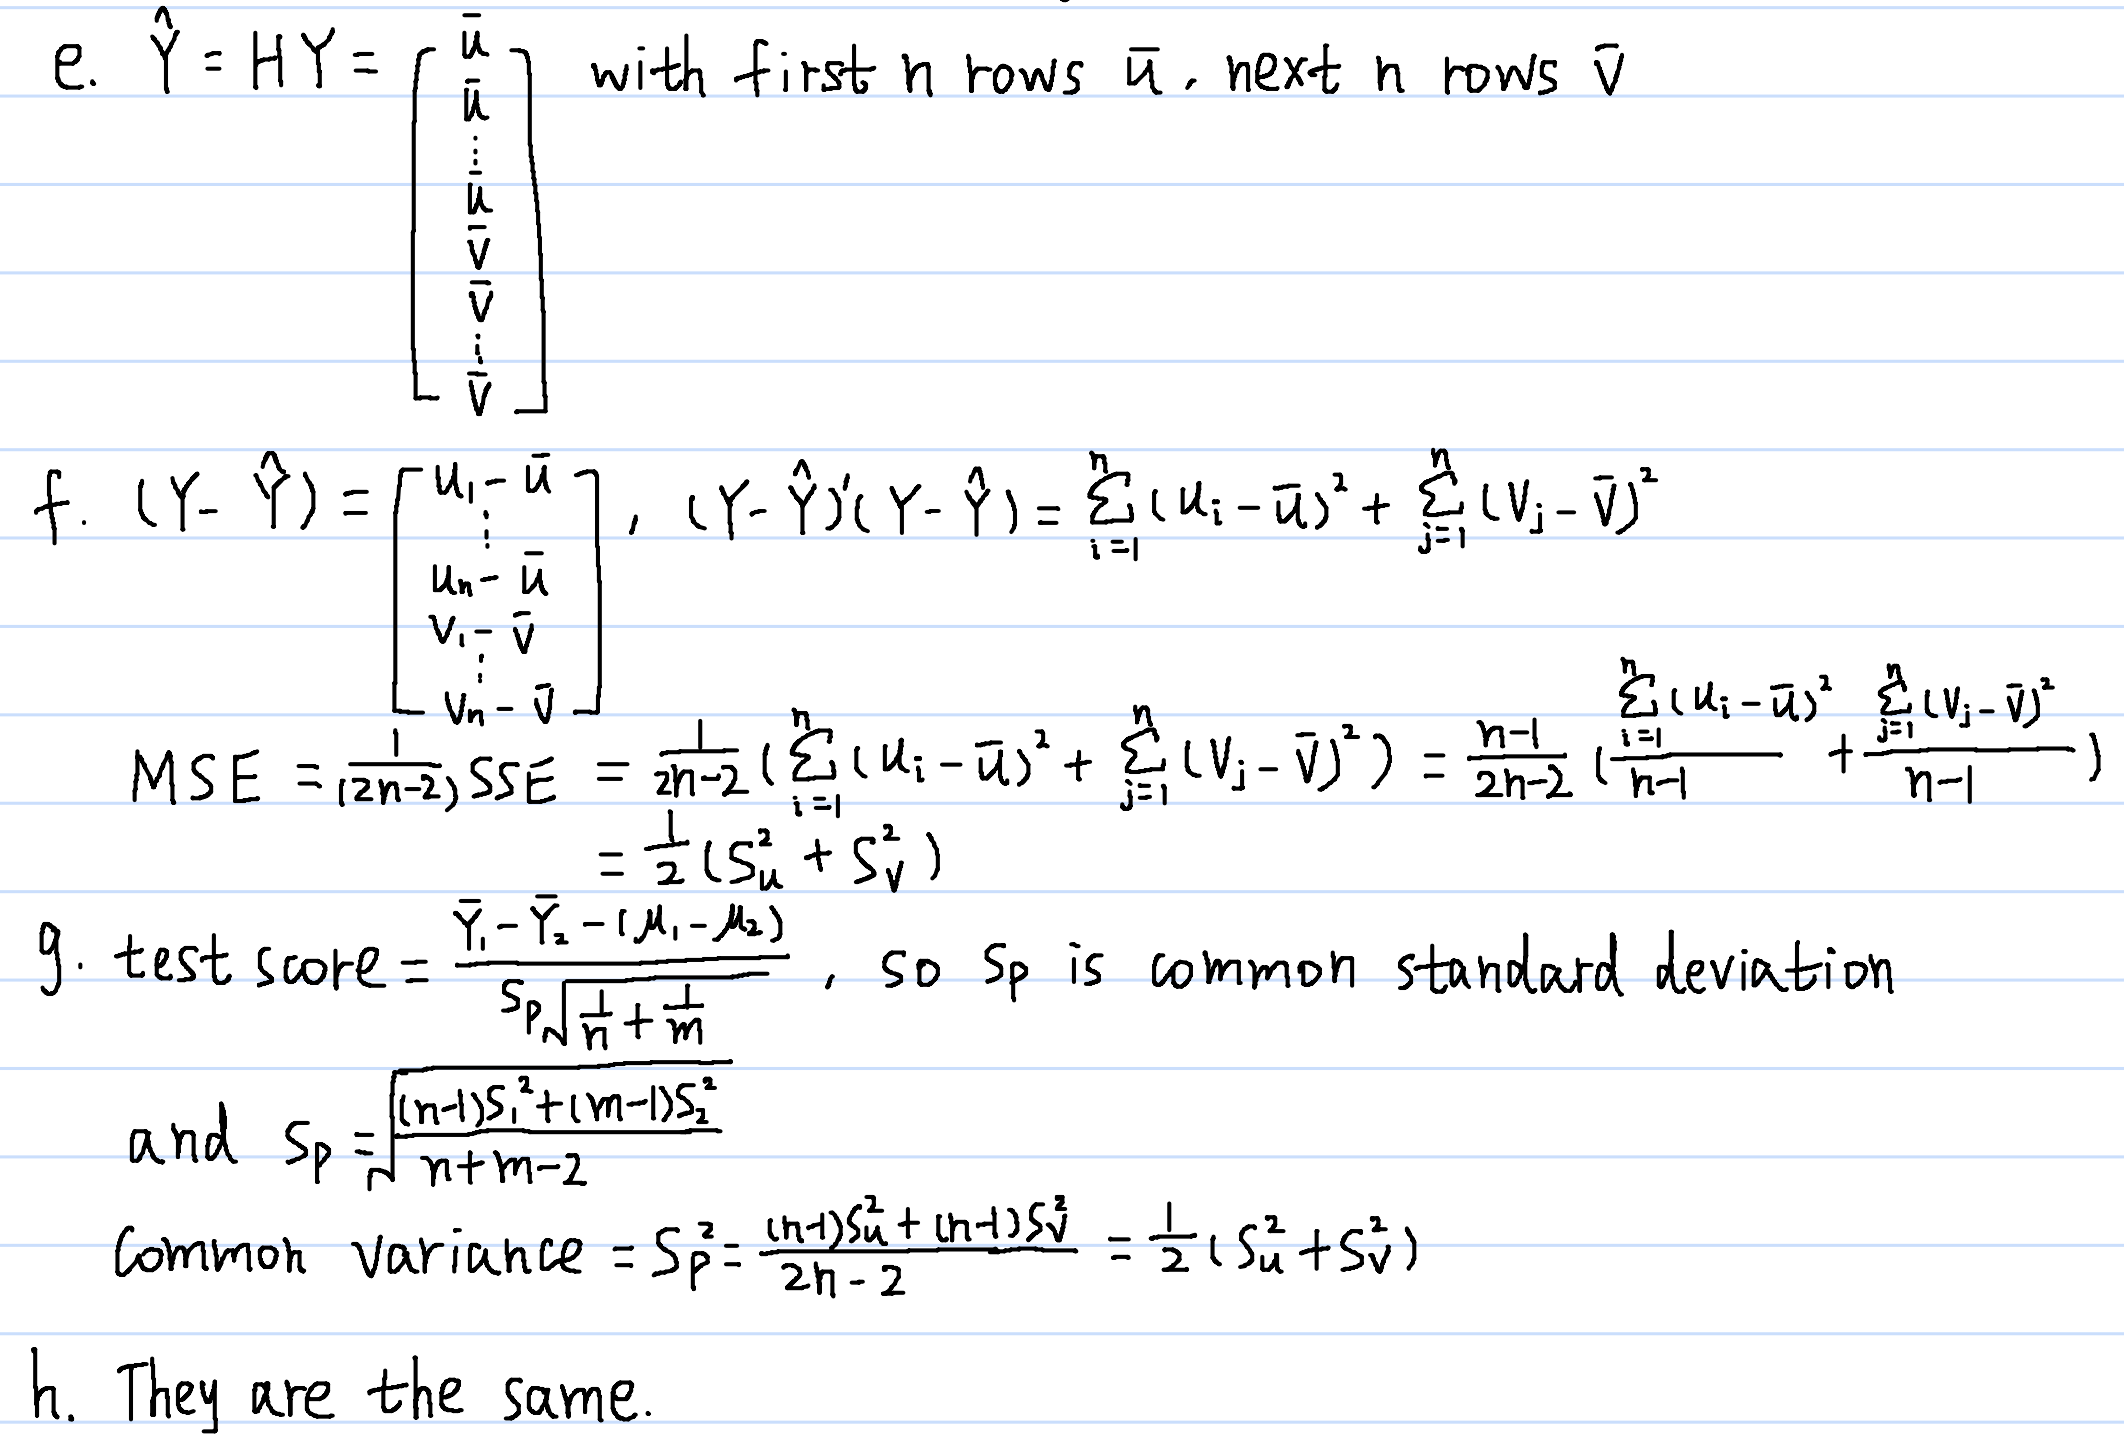 e. Ŷ = HY = [ū ū ⋮ ū v̄ v̄ ⋮ v̄] with first n rows ū, next n rows v̄
f. (Y - Ŷ) = [u₁ - ū ⋮ uₙ - ū v₁ - v̄ ⋮ vₙ - v̄], (Y - Ŷ)'(Y - Ŷ) = ∑ⁿᵢ₌₁ (uᵢ - ū)² + ∑ⁿⱼ₌₁ (vⱼ - v̄)²
MSE = 1/(2n-2) SSE = 1/2n-2 (∑ⁿᵢ₌₁ (uᵢ - ū)² + ∑ⁿⱼ₌₁ (vⱼ - v̄)²) = n-1/2n-2 (∑ⁿᵢ₌₁ (uᵢ - ū)²/n-1 + ∑ⁿⱼ₌₁ (vⱼ - v̄)²/n-1)
= 1/2 (S²ᵤ + S²ᵥ)
g. test score = Ȳ₁ - Ȳ₂ - (μ₁ - μ₂) / Sp√(1/n + 1/m), so Sp is common standard deviation
and Sp = √((n-1)S₁² + (m-1)S₂² / n+m-2)
Common variance = Sp² = (n-1)S²ᵤ + (n-1)S²ᵥ / 2n-2 = 1/2 (S²ᵤ + S²ᵥ)
h. They are the same.